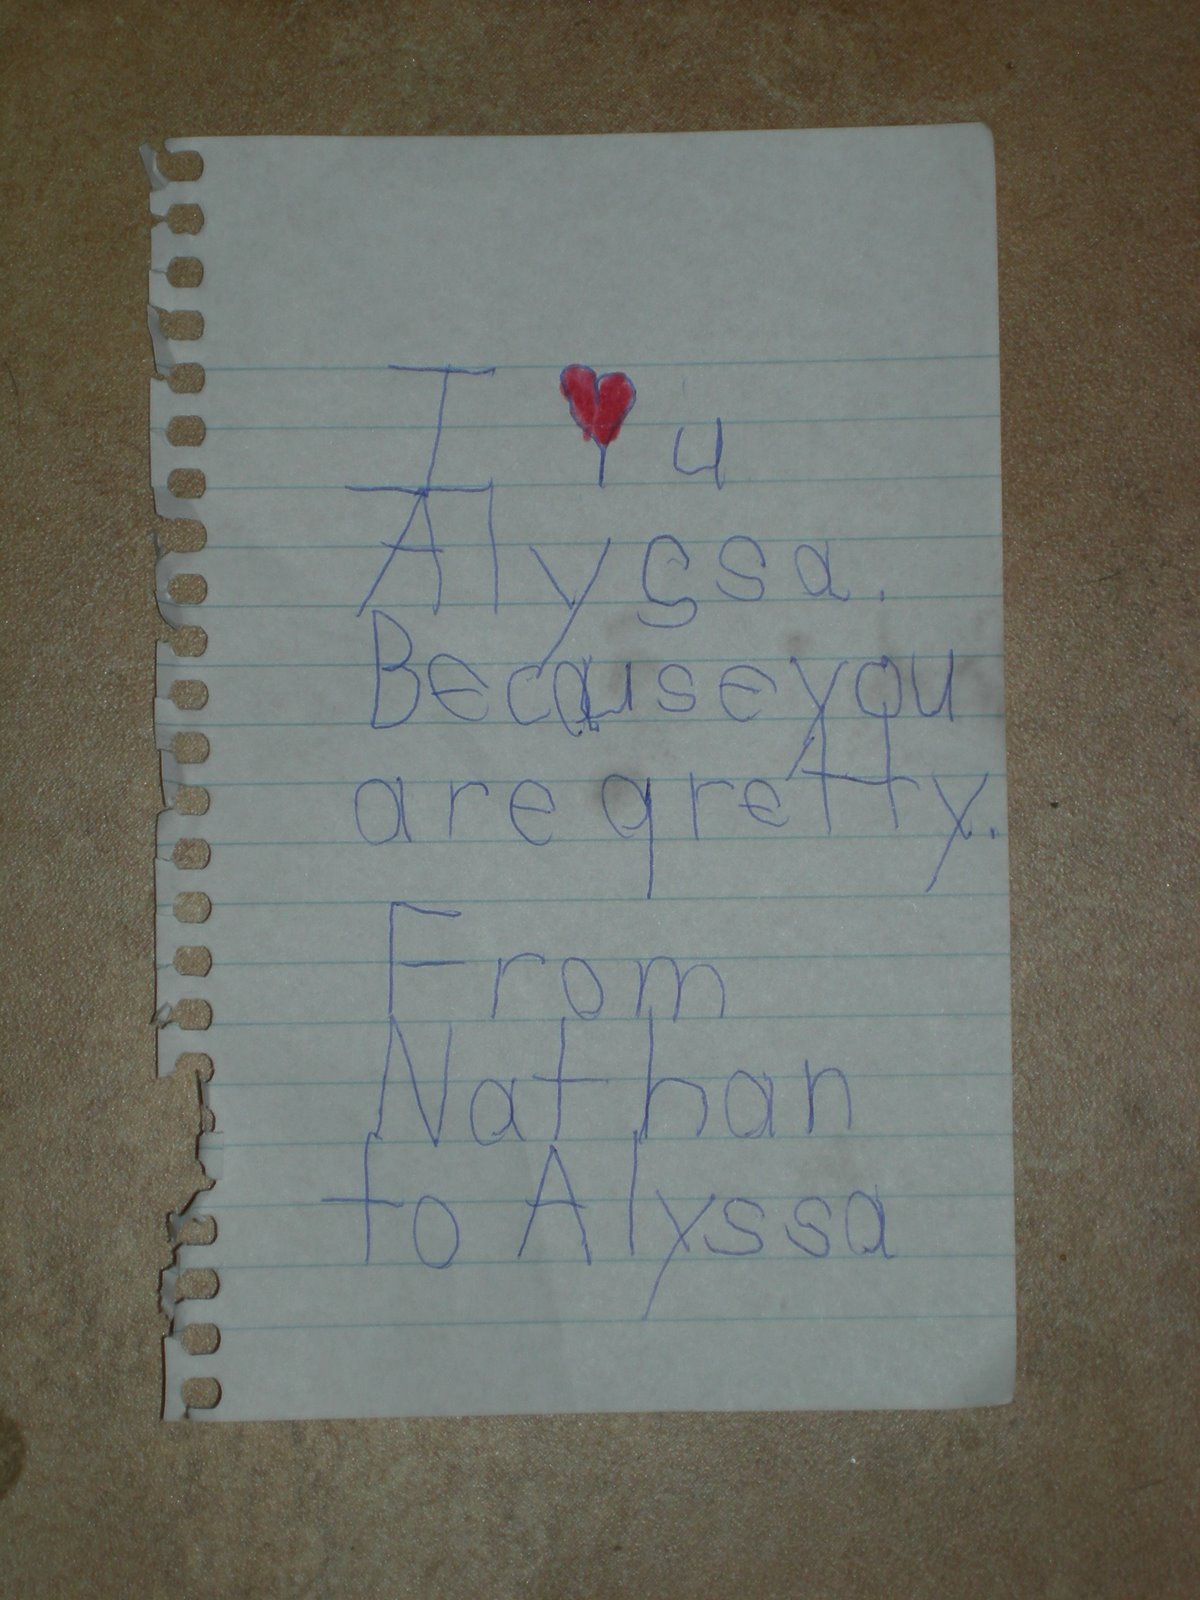 I ♥ u
Alyssa.
Because you
are qretty.
From
Nathan
to Alyssa